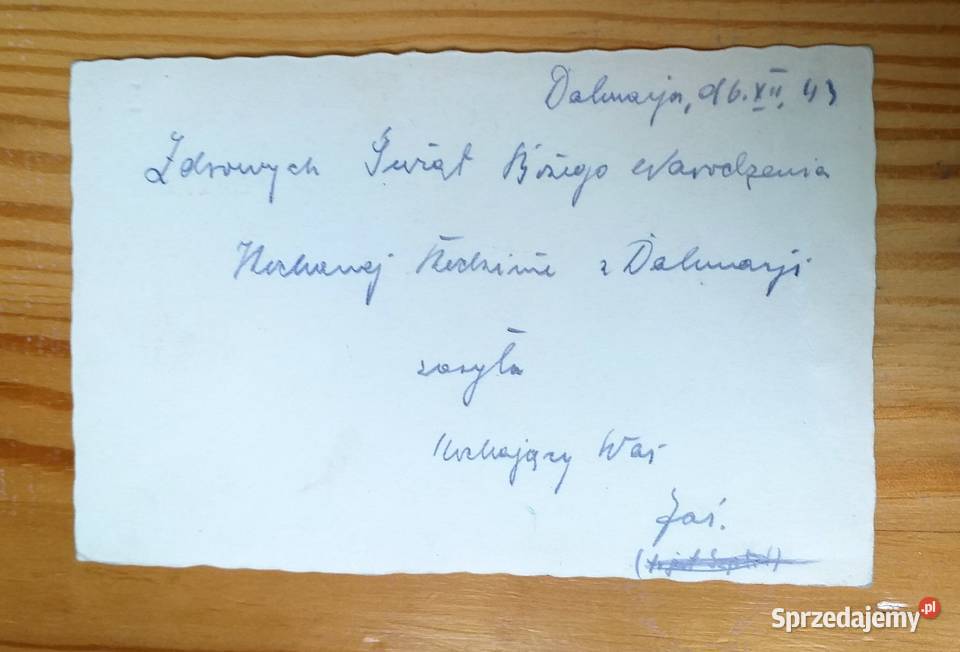 Dalmacja, d 6.XII. 43
Zdrowych Świąt Bożego Narodzenia
Kochanej Rodzinie z Dalmacji
zasyła
Kochający Was
Jaś.
Sprzedajemy.pl